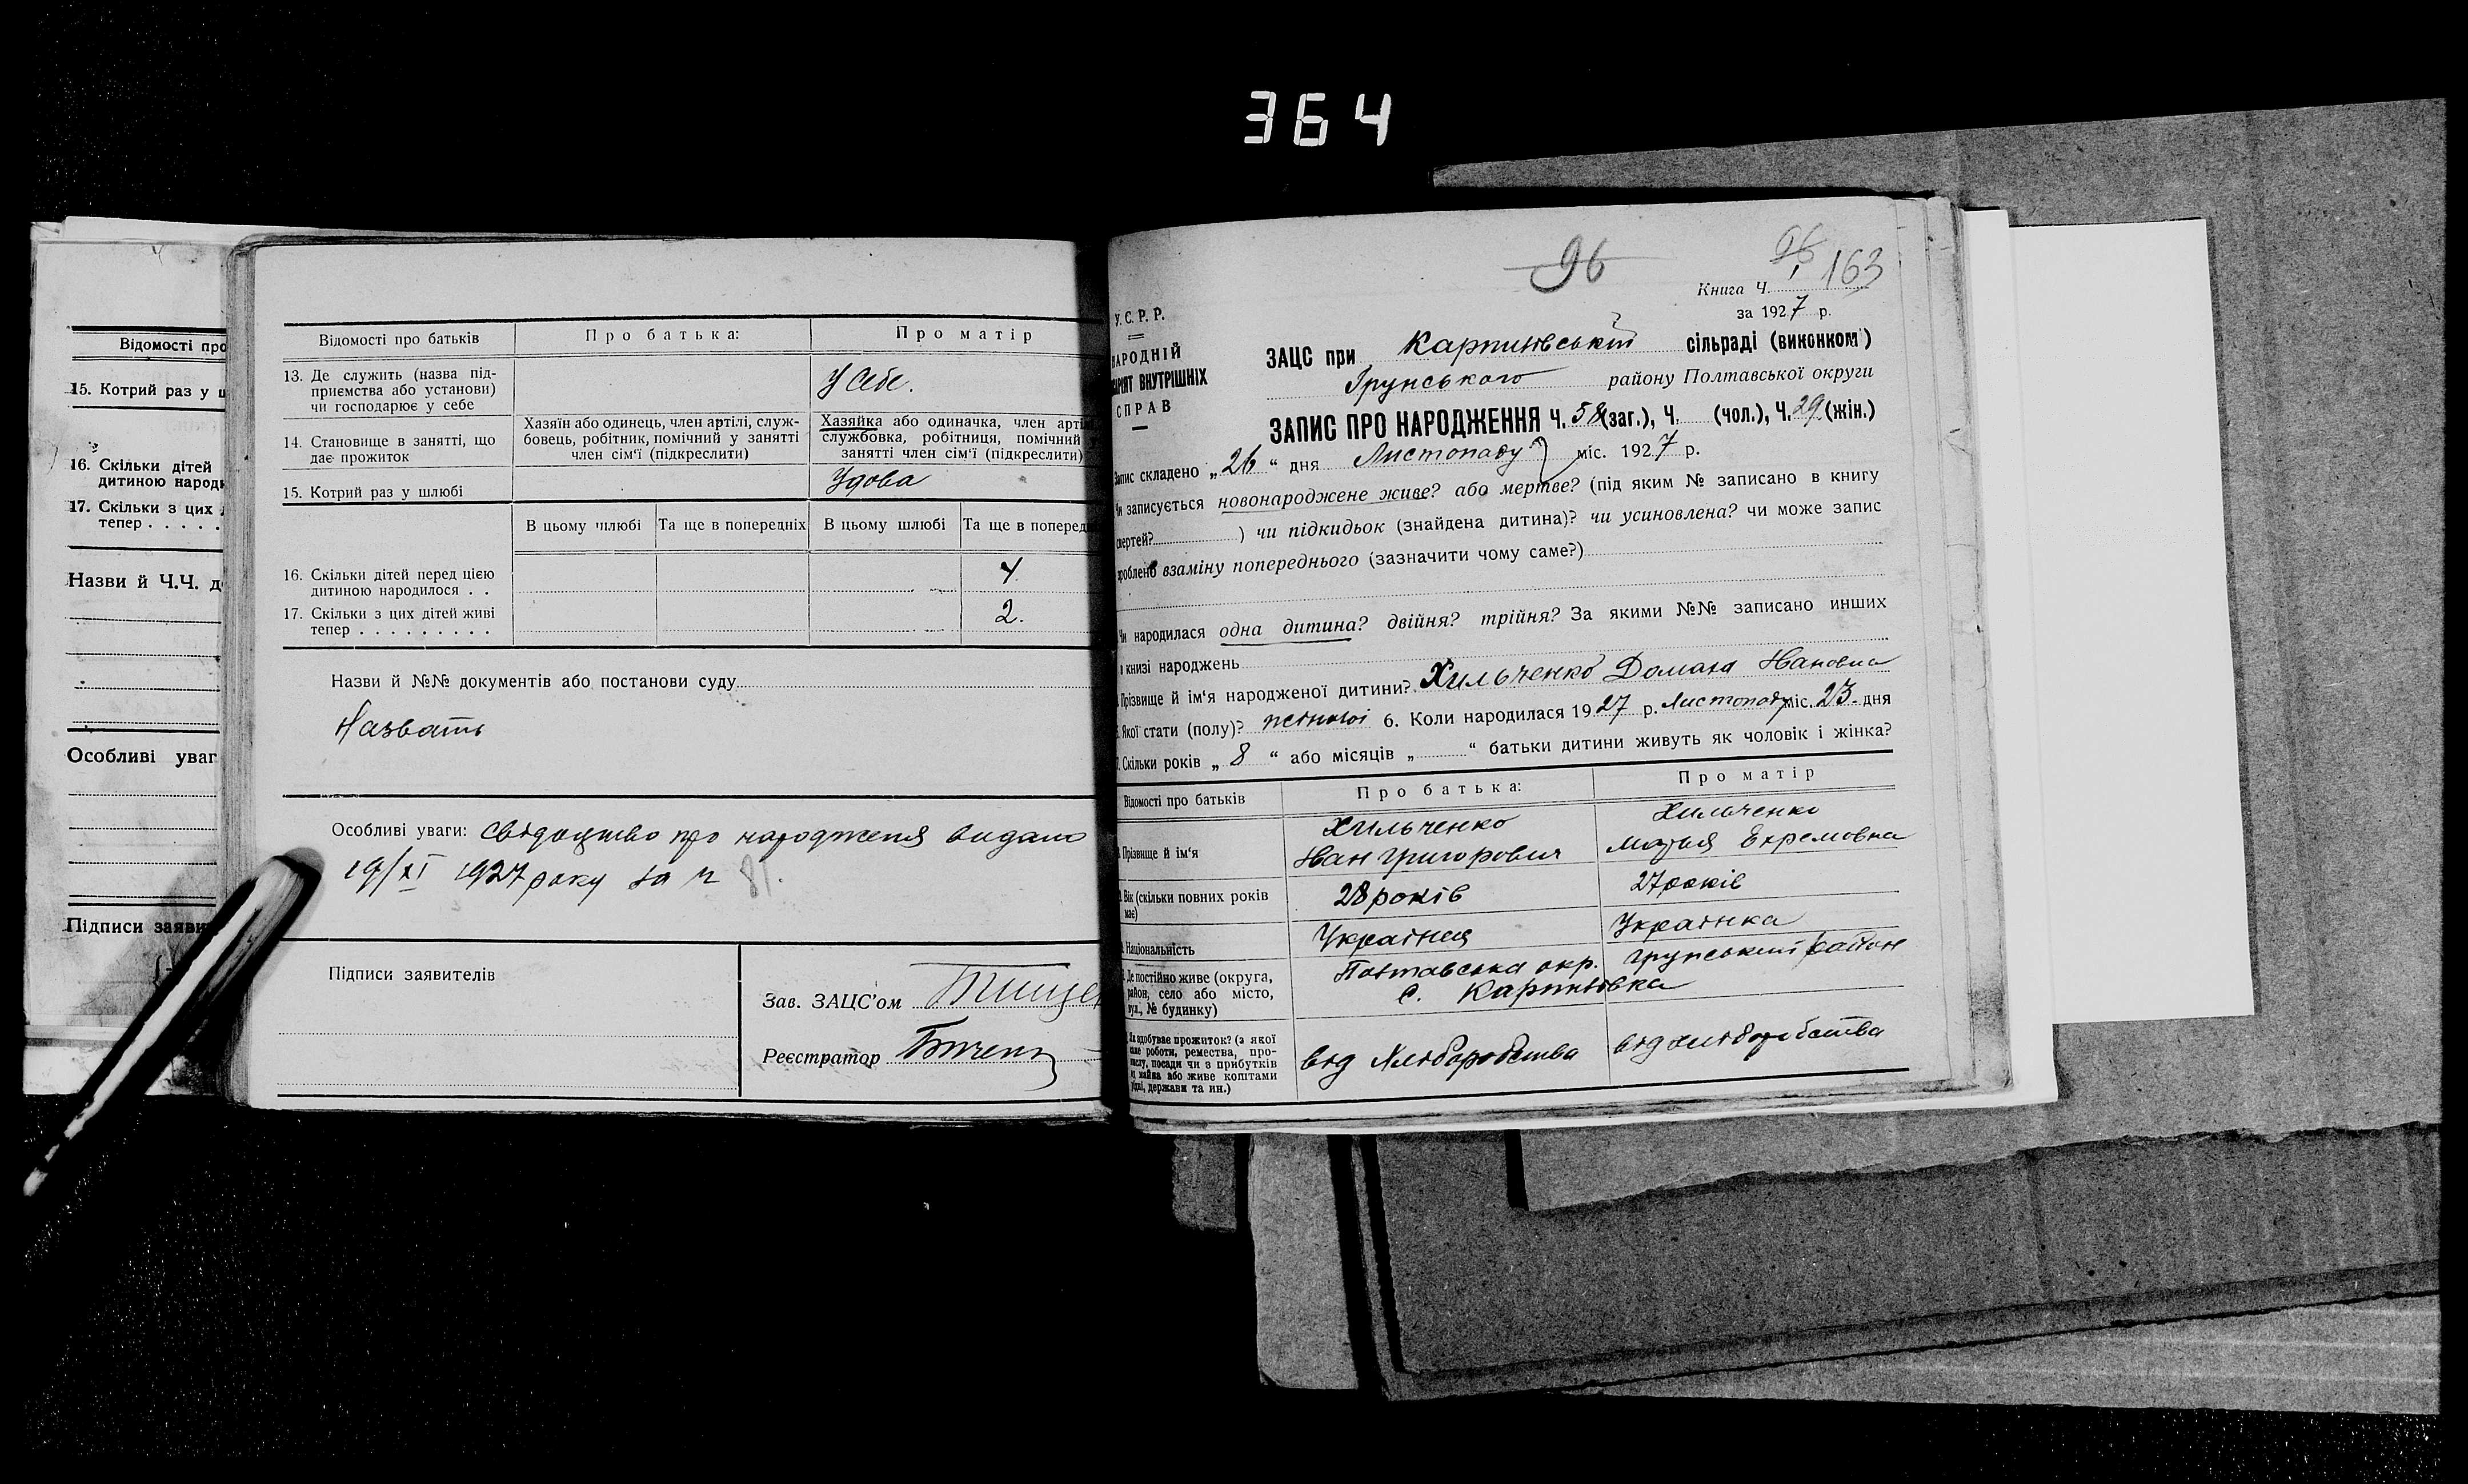 364
Відомості про
15. Котрий раз у ш
16. Скільки дітей
дитиною народи
17. Скільки з цих
тепер . . . . .
Назви й Ч.Ч. д
Особливі уваг
Підписи заяви
Відомості про батьків
Про батька:
Про матір
13. Де служить (назва під-
приємства або установи)
чи господарює у себе
У себе.
14. Становище в занятті, що
дає прожиток
Хазяїн або одинець, член артілі, служ-
бовець, робітник, помічний у занятті
член сім'ї (підкреслити)
Хазяйка або одиначка, член арті
службовка, робітниця, помічний
занятті член сім'ї (підкреслити)
15. Котрий раз у шлюбі
Удова
В цьому шлюбі
Та ще в попередніх
В цьому шлюбі
Та ще в поперед
16. Скільки дітей перед цією
дитиною народилося . .
4
17. Скільки з цих дітей живі
тепер . . . . . . . . .
2.
Назви й №№ документів або постанови суду
Назвать
Особливі уваги: свідоцтво про народженя видано
19/XI 1927 року за ч 81.
Підписи заявителів
Зав. ЗАЦС'ом
Реєстратор
96
96
163
Книга Ч.
за 1927 р.
У.С.Р.Р.
НАРОДНІЙ
АРІЯТ ВНУТРІШНІХ
СПРАВ
ЗАЦС при Карпилівській сільраді (виконком)
Грунського району Полтавської округи
ЗАПИС ПРО НАРОДЖЕННЯ Ч. 58 (заг.), Ч. (чол.), Ч. 29 (жін.)
Запис складено „26" дня Листопаду міс. 1927 р.
Чи записується новонароджене живе? або мертве? (під яким № записано в книгу
смертей? ) чи підкидьок (знайдена дитина)? чи усиновлена? чи може запис
зроблено взаміну попереднього (зазначити чому саме?)
Чи народилася одна дитина? двійня? трійня? За якими №№ записано инших
в книзі народжень
Прізвище й ім'я народженої дитини? Хильченко Домаха Івановна
Якої стати (полу)? жіночої 6. Коли народилася 1927 р. Листопаду міс. 23. дня
Скільки років „8" або місяців „ " батьки дитини живуть як чоловік і жінка?
Відомості про батьків
Про батька:
Про матір
Прізвище й ім'я
Хильченко
Іван Григорович
Хильченко
Марья Ехремовна
Вік (скільки повних років
має)
28 років
27 років
Національність
Українця
Українка
Де постійно живе (округа,
район, село або місто,
вул., № будинку)
Полтавська окр. Грунський район
с. Карпилівка
Як здобуває прожиток? (з якої
саме роботи, ремества, про-
мислу, посади чи з прибутків
від майна або живе коштами
рідні, держави та ин.)
від Хліборобства
від хліборобства